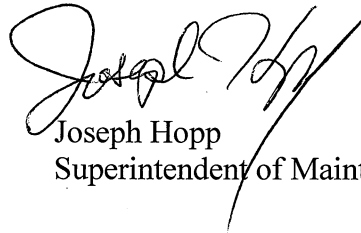 Joseph Hopp
Joseph Hopp
Superintendent of Maint